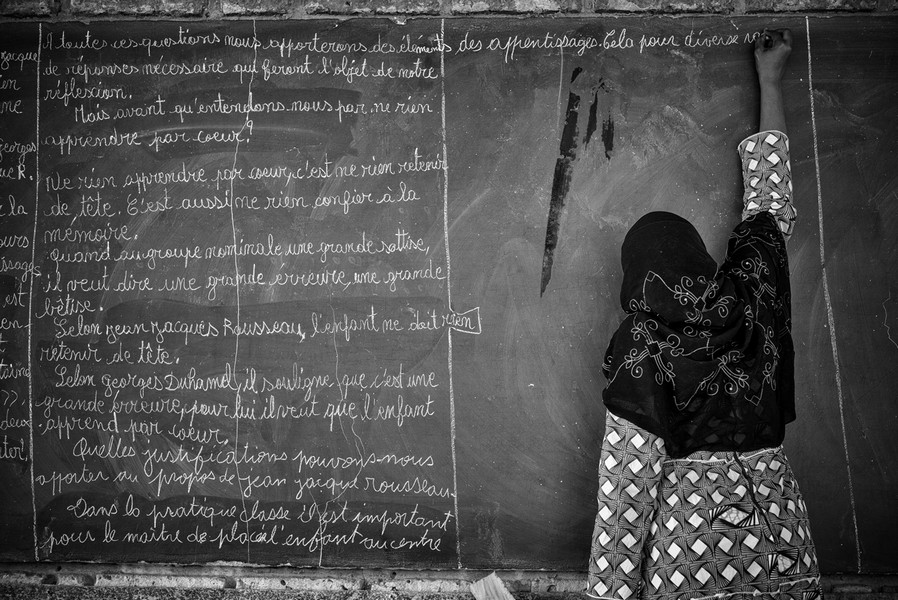 jacques
en
ne
georges
R.
la
ours
issages
est
en
deux
A toutes ces questions nous apporterons des éléments
de réponses nécessaire qui feront l'objet de notre
réflexion.
Mais avant qu'entendons-nous par ne rien
apprendre par coeur?
Ne rien apprendre par coeur, c'est ne rien retenir
de tête. C'est aussi ne rien confier à la
memoire.
Quand au groupe nominale une grande sottise,
il veut dire une grande érreure, une grande
bêtise.
Selon jean jacques Rousseau, l'enfant ne doit rien
retenir de tête.
Selon georges Duhamel, il souligne que c'est une
grande érreure, pour lui il veut que l'enfant
apprend par coeur.
Quelles justifications pouvons-nous
apporter au propos de jean jacque rousseau.
Dans la pratique classe il est important
pour le maître de placé l'enfant au centre
des apprentissages. Cela pour diverse